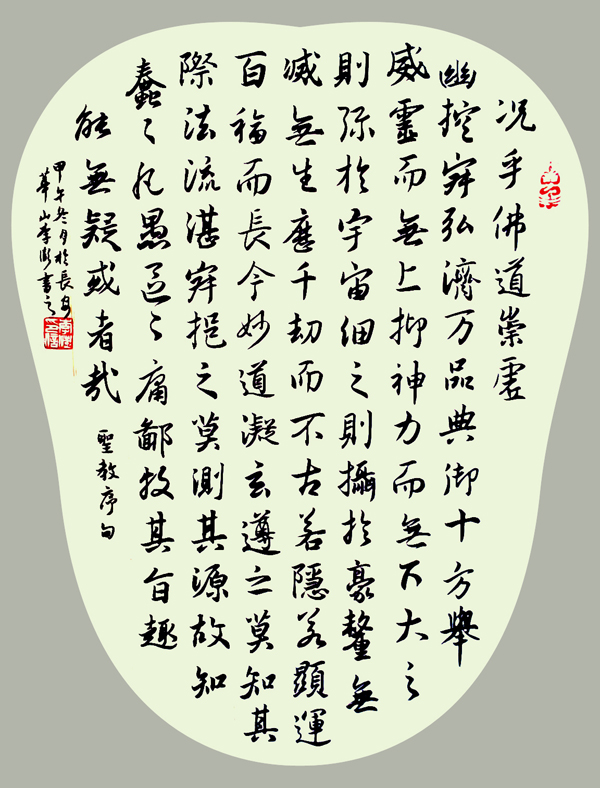 况乎佛道崇虚
幽控寂弘濟万品典御十方舉
威靈而無上抑神力而無下大之
則弥於宇宙細之則攝於豪釐無
滅無生歷千劫而不古若隱若顯運
百福而長今妙道凝玄遵之莫知其
際法流湛寂挹之莫測其源故知
蠢々凡愚區々庸鄙投其旨趣
能無疑或者哉
聖教序句
甲午冬月於長安
華山李書之